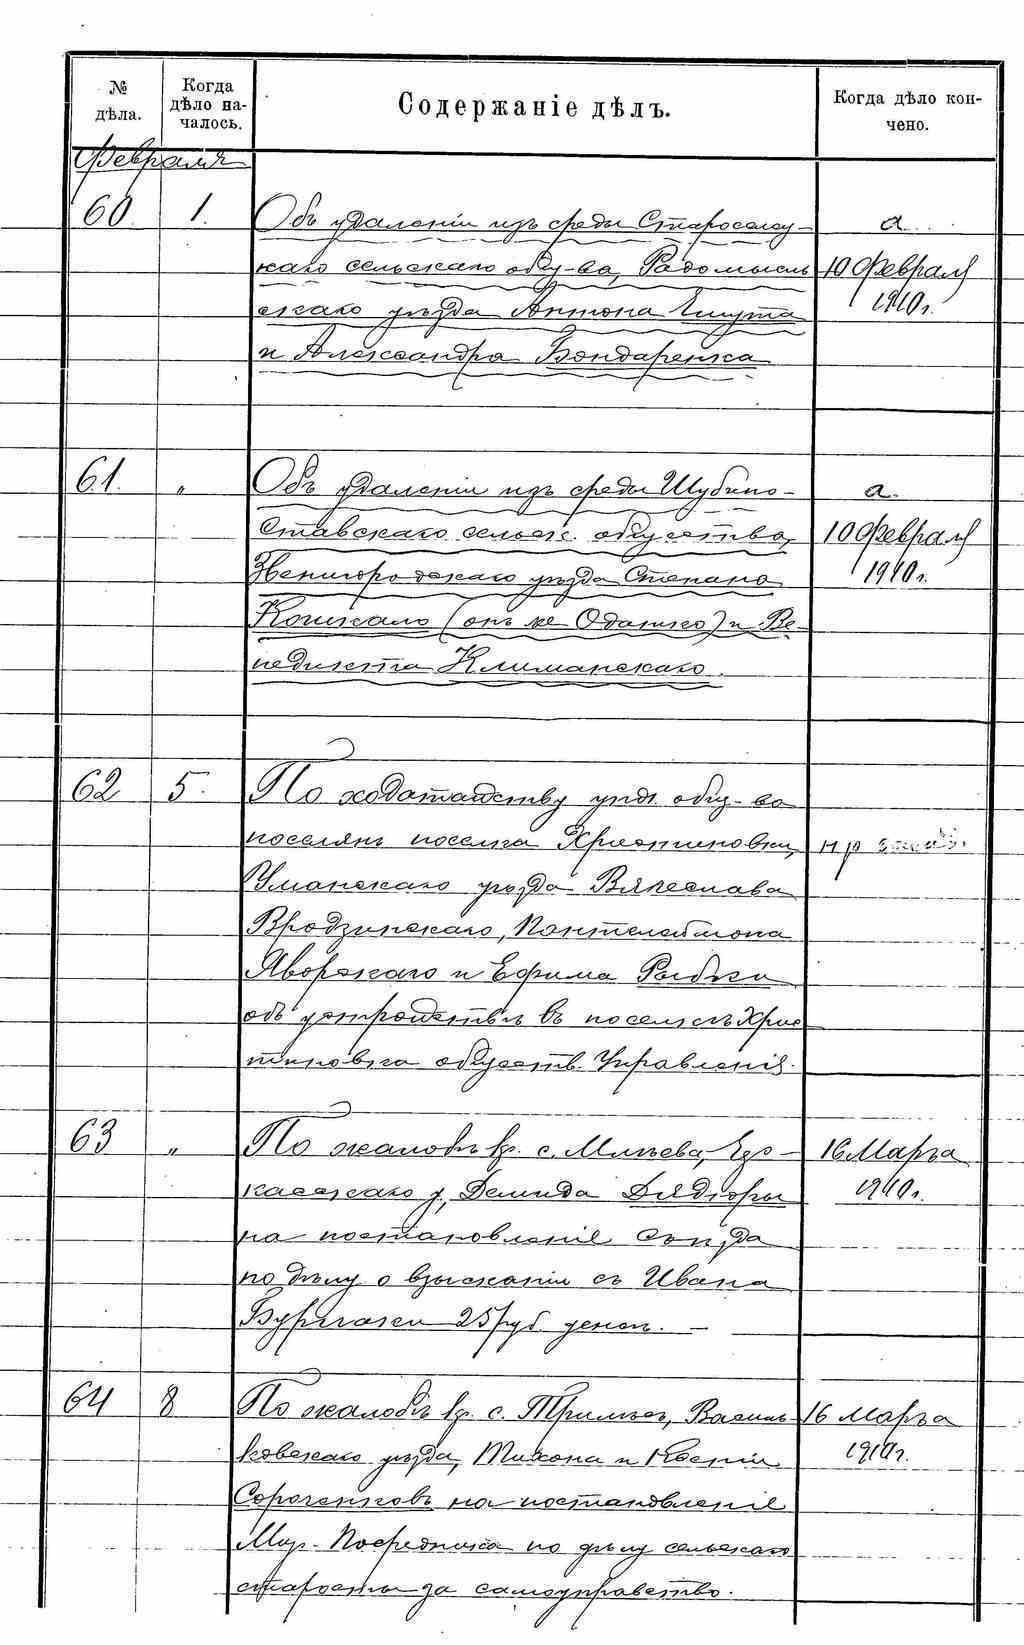 № дѣла.
Когда дѣло началось.
Содержаніе дѣлъ.
Когда дѣло кончено.
Февраля
60. 1. Объ удаленіи изъ среды Старосель-
скаго сельскаго общ-ва, Радомысль
скаго уѣзда Антона
и Александра Бондаренка
а.
10 Февраля
1910 г.
61. „ Объ удаленіи изъ среды Шубино-
Ставскаго сельск. общества,
Звенигородскаго уѣзда Степана
Кошкало (онъ же Одашко) и Ве-
недикта Климанскаго.
а.
10 Февраля
1910 г.
62 5. По ходатайству упол. общ-ва
поселянъ поселка Христиновки,
Уманскаго уѣзда Вячеслава
Вродзинскаго, Пантелеймона
Яворскаго и Ефима Рыбки
объ устройствѣ въ поселкѣ Хрис
тиновка обществ. Управленія.
63 „ По жалобѣ кр. с. Млѣева, Чер-
касскаго у, Демида Дядюры
на постановленіе Съѣзда
по дѣлу о взысканіи съ Ивана
25 руб. денег. —
16 Марта
1910 г.
64 8 По жалобѣ кр. с. Трилѣс, Василь-
ковскаго уѣзда, Тихона и Ксеніи
Сороченковъ на постановленіе
Мир. Посредника по дѣлу сельскаго
старосты за самоуправство.
16 Марта
1910 г.